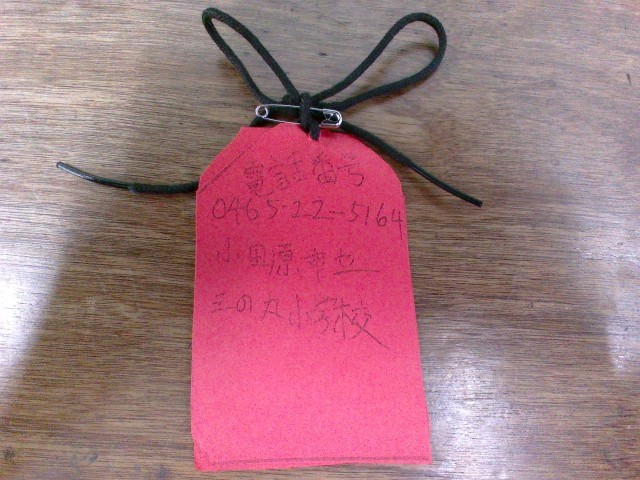 電話番号
0465-22-5164
小田原市立
三の丸小学校